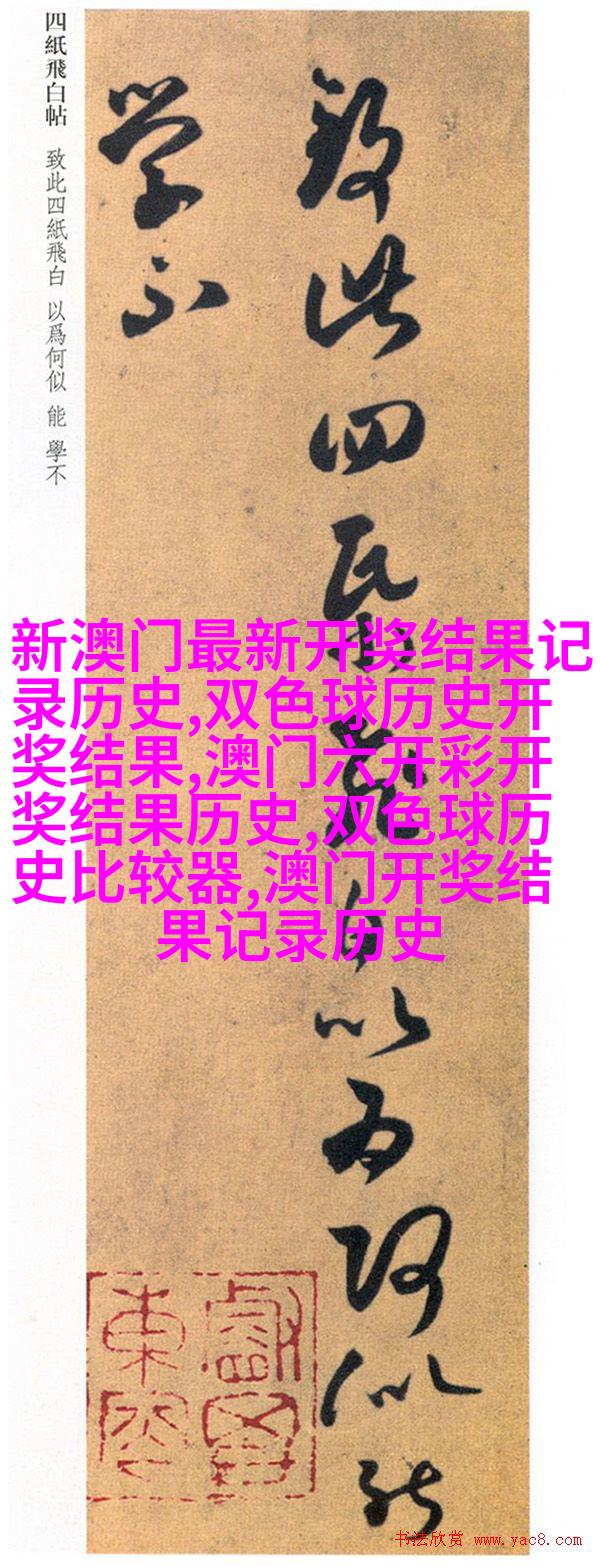 四紙飛白帖 致此四紙飛白 以爲何似 能 學不
致此四紙飛白以为何似能
学不
新澳门最新开奖结果记
录历史,双色球历史开
奖结果,澳门六开彩开
奖结果历史,双色球历
史比较器,澳门开奖结
果记录历史
书法欣赏 www.yac8.com